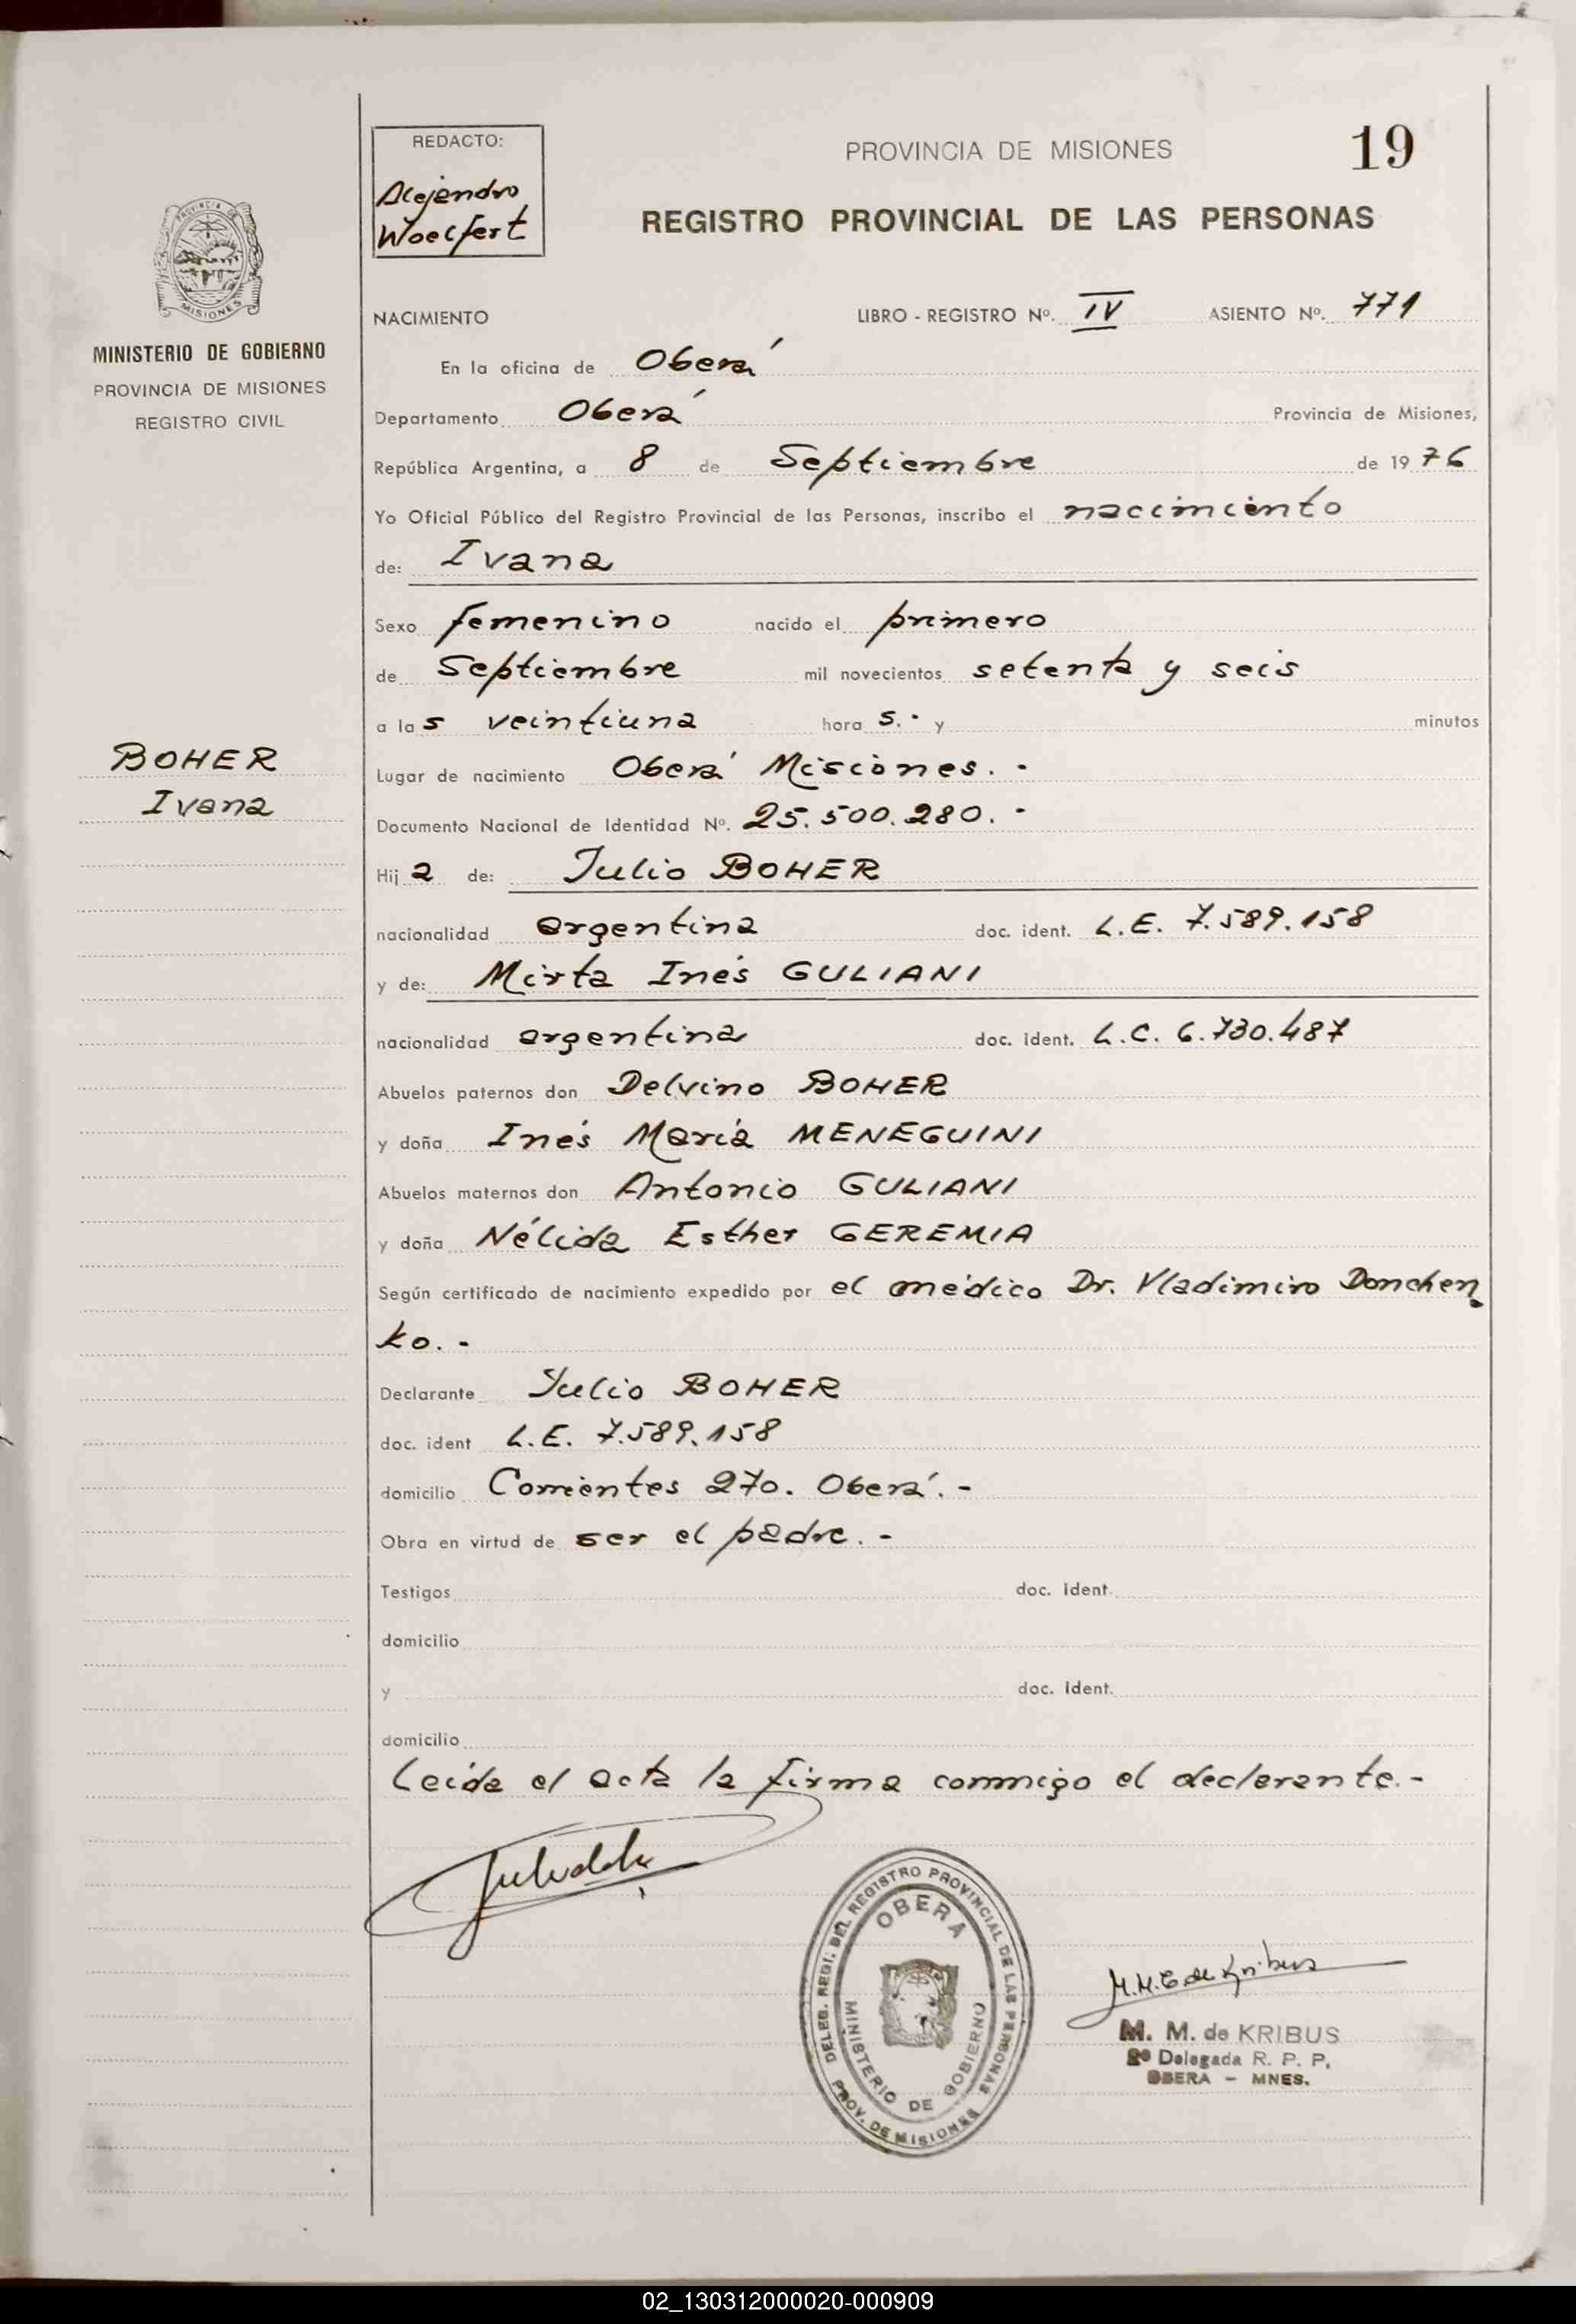 19
REDACTO:
Alejandro
Woelfert
PROVINCIA DE MISIONES
REGISTRO PROVINCIAL DE LAS PERSONAS
PROVINCIA DE
MISIONES
MINISTERIO DE GOBIERNO
PROVINCIA DE MISIONES
REGISTRO CIVIL
NACIMIENTO LIBRO - REGISTRO Nº. IV ASIENTO Nº. 771
En la oficina de Oberá
Departamento Oberá Provincia de Misiones,
República Argentina, a 8 de Septiembre de 1976
Yo Oficial Público del Registro Provincial de las Personas, inscribo el nacimiento
de: Ivana
Sexo femenino nacido el primero
de Septiembre mil novecientos setenta y seis
a las veintiuna hora s.- y minutos
BOHER
Ivana
Lugar de nacimiento Oberá Misiones.-
Documento Nacional de Identidad Nº. 25.500.280.-
Hij a de: Julio BOHER
nacionalidad argentina doc. ident. L.E. 7.589.158
y de: Mirta Inés GULIANI
nacionalidad argentina doc. ident. L.C. 6.730.487
Abuelos paternos don Delvino BOHER
y doña Inés María MENEGUINI
Abuelos maternos don Antonio GULIANI
y doña Nélida Esther GEREMIA
Según certificado de nacimiento expedido por el médico Dr. Vladimiro Donchen
ko.-
Declarante Julio BOHER
doc. ident L.E. 7.589.158
domicilio Corrientes 270. Oberá.-
Obra en virtud de ser el padre.-
Testigos doc. ident.
domicilio
y doc. ident.
domicilio
Leída el acta la firma conmigo el declarante.-
DELEG. REGI. DEL REGISTRO PROVINCIAL DE LAS PERSONAS
OBERA
MINISTERIO DE GOBIERNO
PROV. DE MISIONES
M.M.E de Kribus
M. M. de KRIBUS
2º Delegada R. P. P.
OBERA - MNES.
02_130312000020-000909